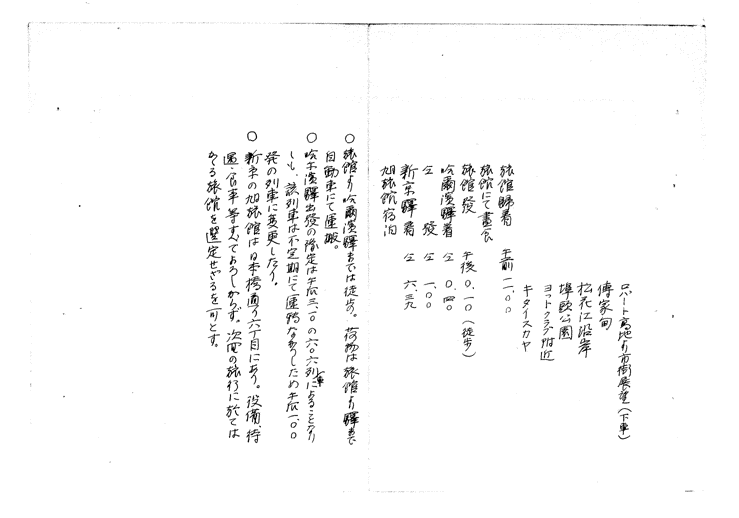 ロバート高地より市街展望（下車）
傅家甸
松花江沿岸
埠頭公園
ヨットクラブ附近
キタイスカヤ
旅館歸着　午前一一、〇〇
旅館にて晝食
旅館發　午後〇、一〇（徒歩）
哈爾濱驛着　仝〇、四〇
仝　發　仝一、〇〇
新京驛着　仝六、三九
旭旅館宿泊
○旅館より哈爾濱驛までは徒歩。荷物は旅館より驛まで
自動車にて運搬。
○哈尓濱驛出發の豫定は午后三、一〇の六〇六列車によることなり
しも、該列車は不定期にて運轉なかりしため午后一、〇〇
発の列車に変更したり。
○新京の旭旅館は日本橋通り六丁目にあり。設備、待
遇、食事等すべてよろしからず。次回の旅行に於ては
かゝる旅館を選定せざるを可とす。